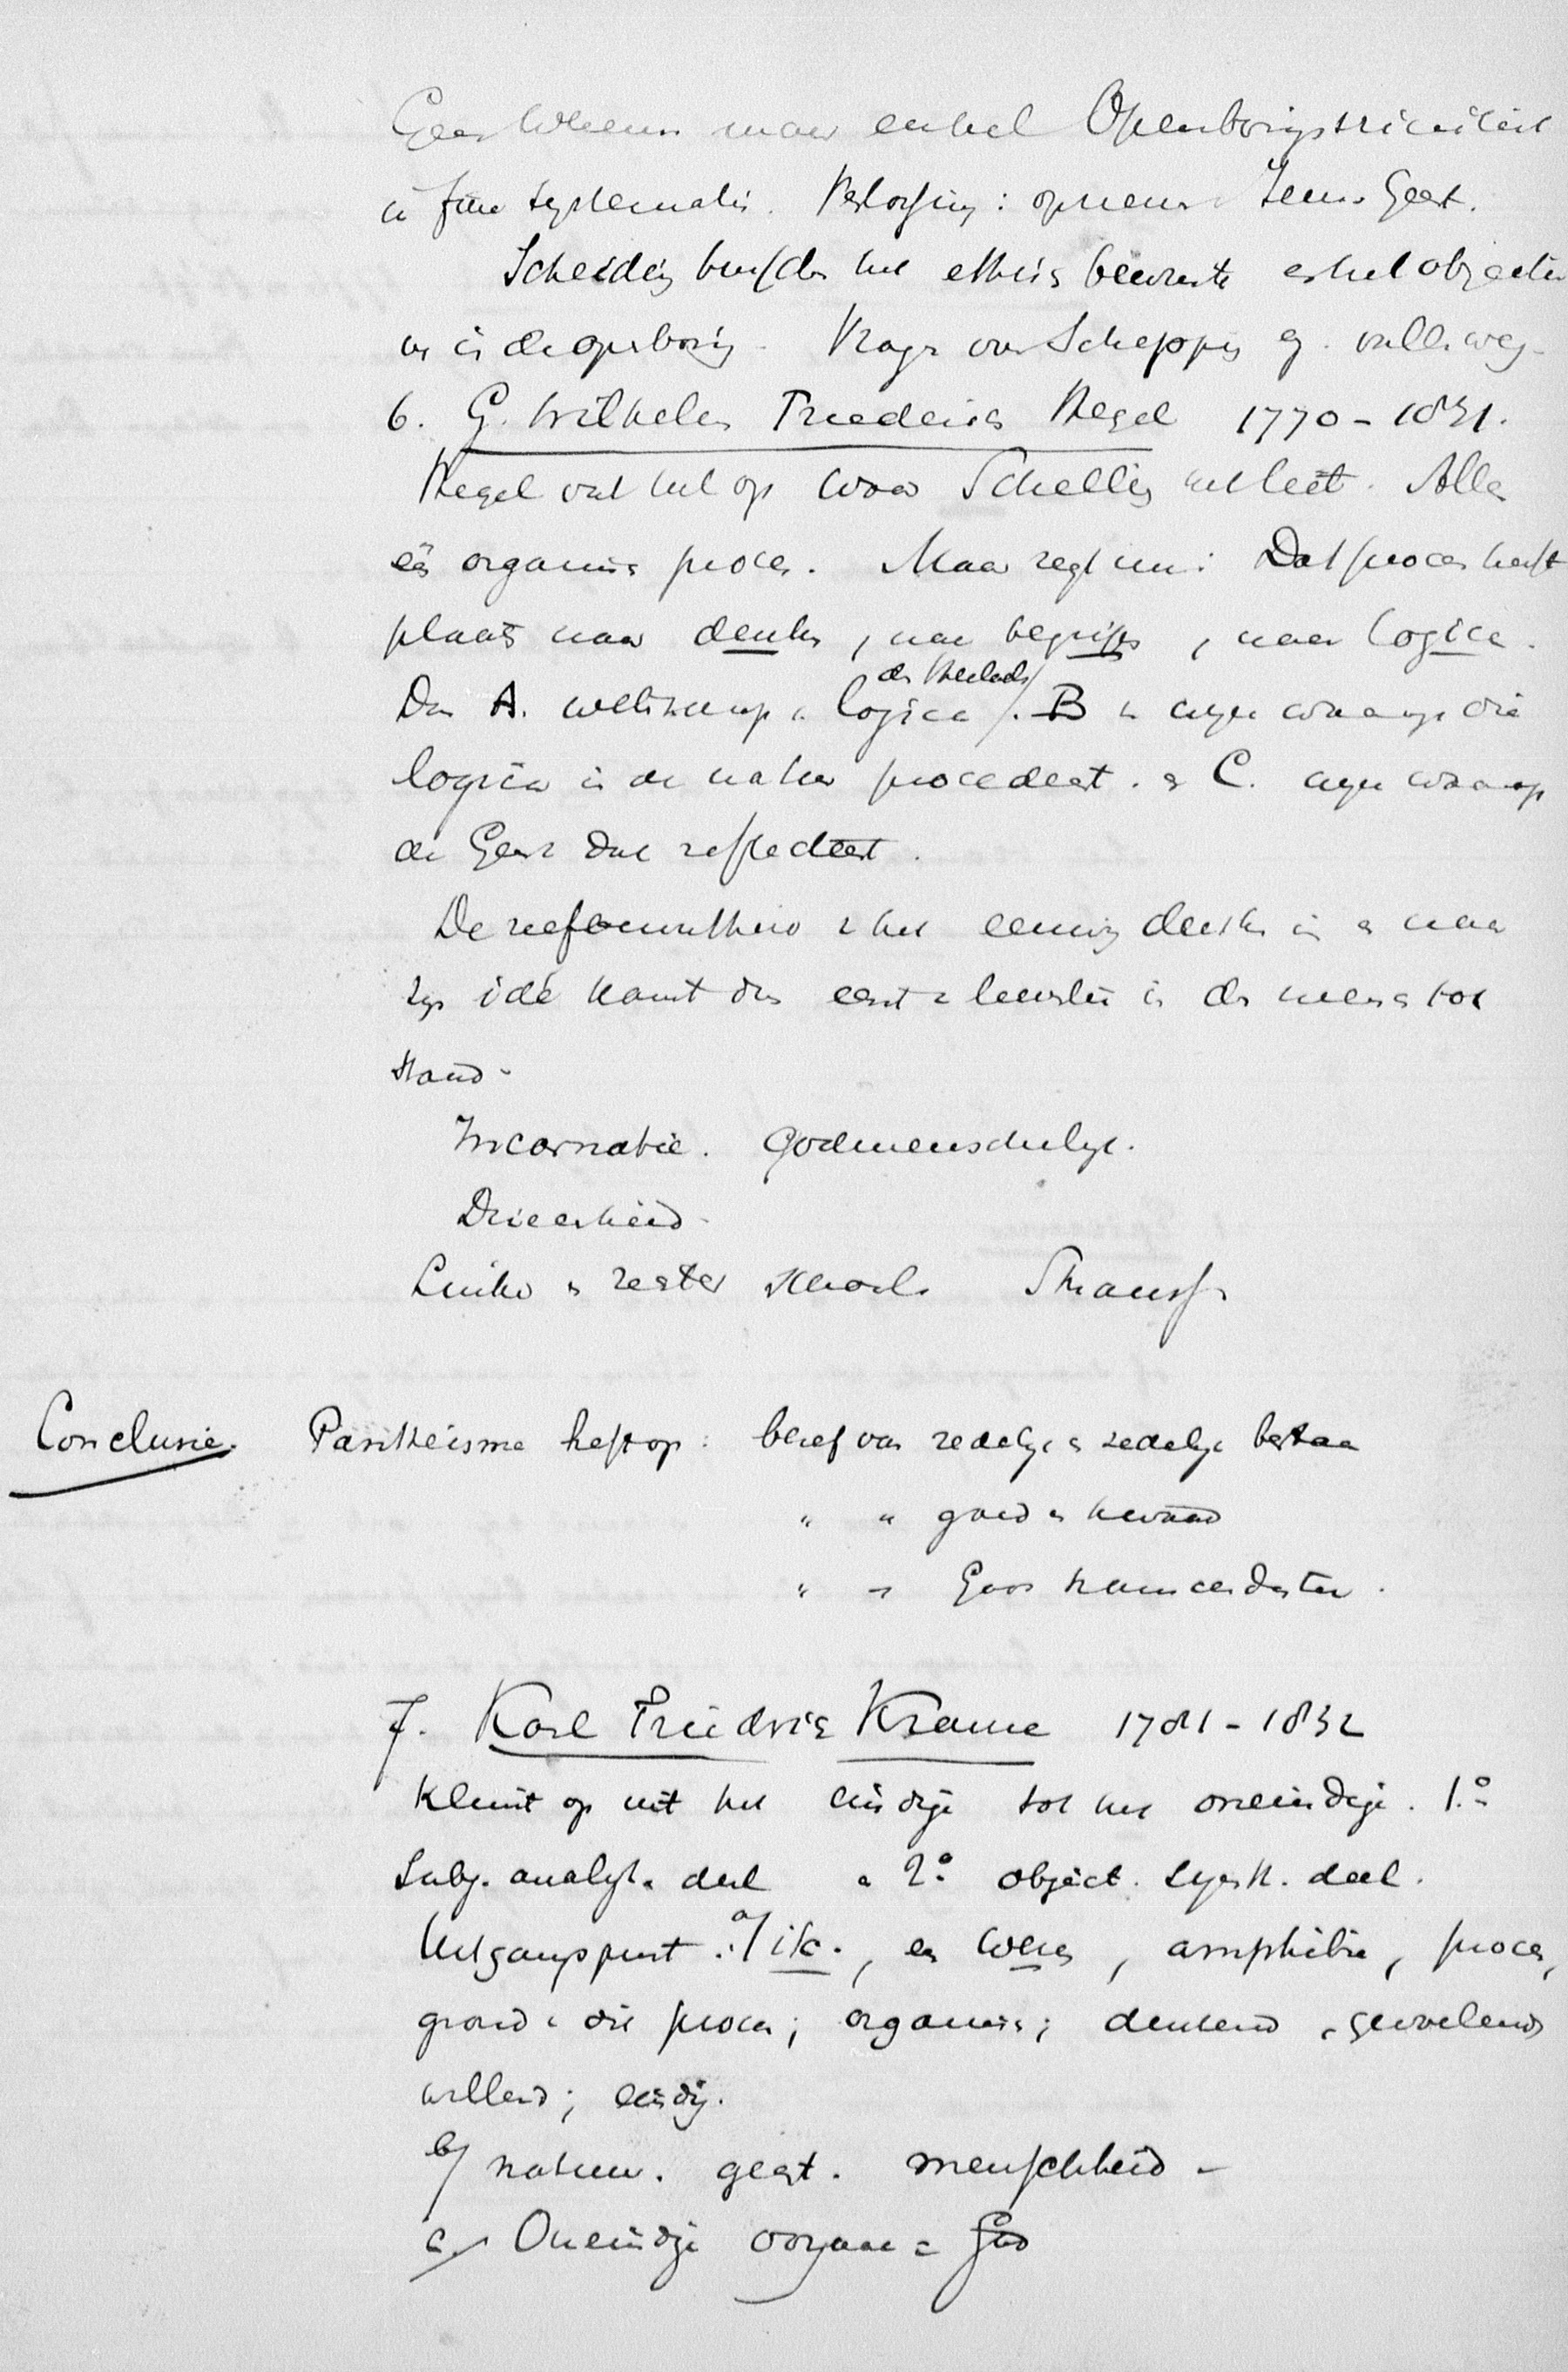 Geen Wezens maar enkel Openbaringstriniteit
in fine systematis. Verlossing: opneme Jezus Geest.
Scheiding tusschen het ethis bewuste en het objectie
ve in de openbaring. Vrage over Schepping eg. valle weg.
6. G. Wilhelm Friederich Hegel 1770-1831.
Hegel vat het op waar Schelling het leet. Alles
één organis proces. Maar zegt nu: Dat proces heeft
plaats naar denken, naar begrippen, naar logica.
Dus A. wetenschap logica der Methode/. B in wijze waarop die
logica in de natuur procedeert. en C. wijze waarop
de Geest dat reflecteert.
De zelfbewustheid het eeuwig denken in en naar
zijn idé komt dus eerst in de mens tot
stand.
Incarnatie. Godmenschelijk.
Drieenheid.
Linker en rechter school. Strauss.
Conclusie. Pantheisme heft op: besef van redelijk en zedelijk bestaan
" " goed en kwaad
" " Gods transcendentie.
7. Karl Friedrich Krause 1781-1832
Klimt op uit het eindige tot het oneindige. 1.o
Subj. analyt. deel en 2.o object. synth. deel.
Uitgangspunt: a/ ik., een wezen, amphibie, proces,
grond v dit proces; organis; denkend, gevoelend
willend; eindig.
b/ natuur. geest. menschheid -
c/ Oneindige oorzaak = God